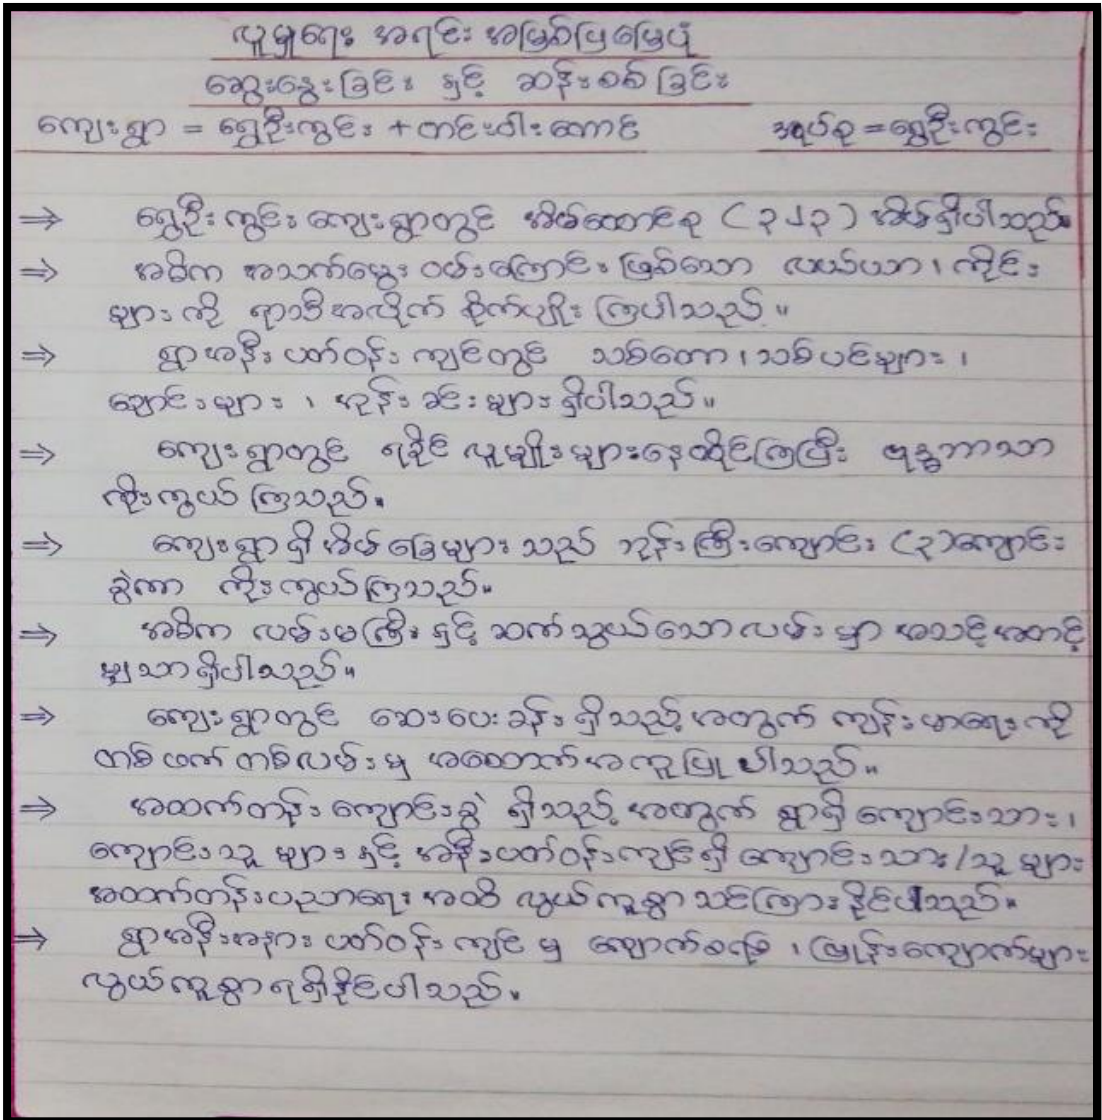 လူမှုရေး အရင်း အမြစ်ပြမြေပုံ
ဆွေးနွေးခြင်း နှင့် ဆန်းစစ်ခြင်း
ကျေးရွာ = ရွှေဦးကွင်း + တင်းဝါးတောင် အုပ်စု = ရွှေဦးကွင်း
⇒ ရွှေဦးကွင်း ကျေးရွာတွင် အိမ်ထောင်စု (၃၂၃) အိမ်ရှိပါသည်။
⇒ အဓိက အသက်မွေး ဝမ်းကြောင်း ဖြစ်သော လယ်ယာ၊ ကိုင်း
များ ကို ရာသီအလိုက် စိုက်ပျိုး ကြပါသည်။
⇒ ရွာအနီး ပတ်ဝန်း ကျင်တွင် သစ်တော၊ သစ်ပင်များ၊
ချောင်းများ၊ ကုန်းခင်းများရှိပါသည်။
⇒ ကျေးရွာတွင် ရခိုင် လူမျိုးများနေထိုင်ကြပြီး ဗုဒ္ဓဘာသာ
ကိုးကွယ် ကြသည်။
⇒ ကျေးရွာရှိ အိမ်ခြေများ သည် ဘုန်းကြီးကျောင်း (၃)ကျောင်း
ခွဲကာ ကိုးကွယ်ကြသည်။
⇒ အဓိက လမ်းမကြီး နှင့် ဆက်သွယ်သောလမ်း မှာ အသင့်အတင့်
မျှသာရှိပါသည်။
⇒ ကျေးရွာတွင် ဆေးပေးခန်း ရှိသည့် အတွက် ကျန်းမာရေး ကို
တစ်ဖက် တစ်လမ်းမှ အထောက်အကူပြု ပါသည်။
⇒ အထက်တန်း ကျောင်းခွဲ ရှိသည့် အတွက် ရွာရှိ ကျောင်းသား၊
ကျောင်းသူ များ နှင့် အနီးပတ်ဝန်းကျင်ရှိ ကျောင်းသား/သူ များ
အထက်တန်းပညာရေး အထိ လွယ်ကူစွာ သင်ကြား နိုင်ပါသည်။
⇒ ရွာအနီးအနား ပတ်ဝန်းကျင် မှ ကျောက်စရစ်၊ မြုန်းကျောက်များ
လွယ်ကူစွာရရှိနိုင်ပါသည်။